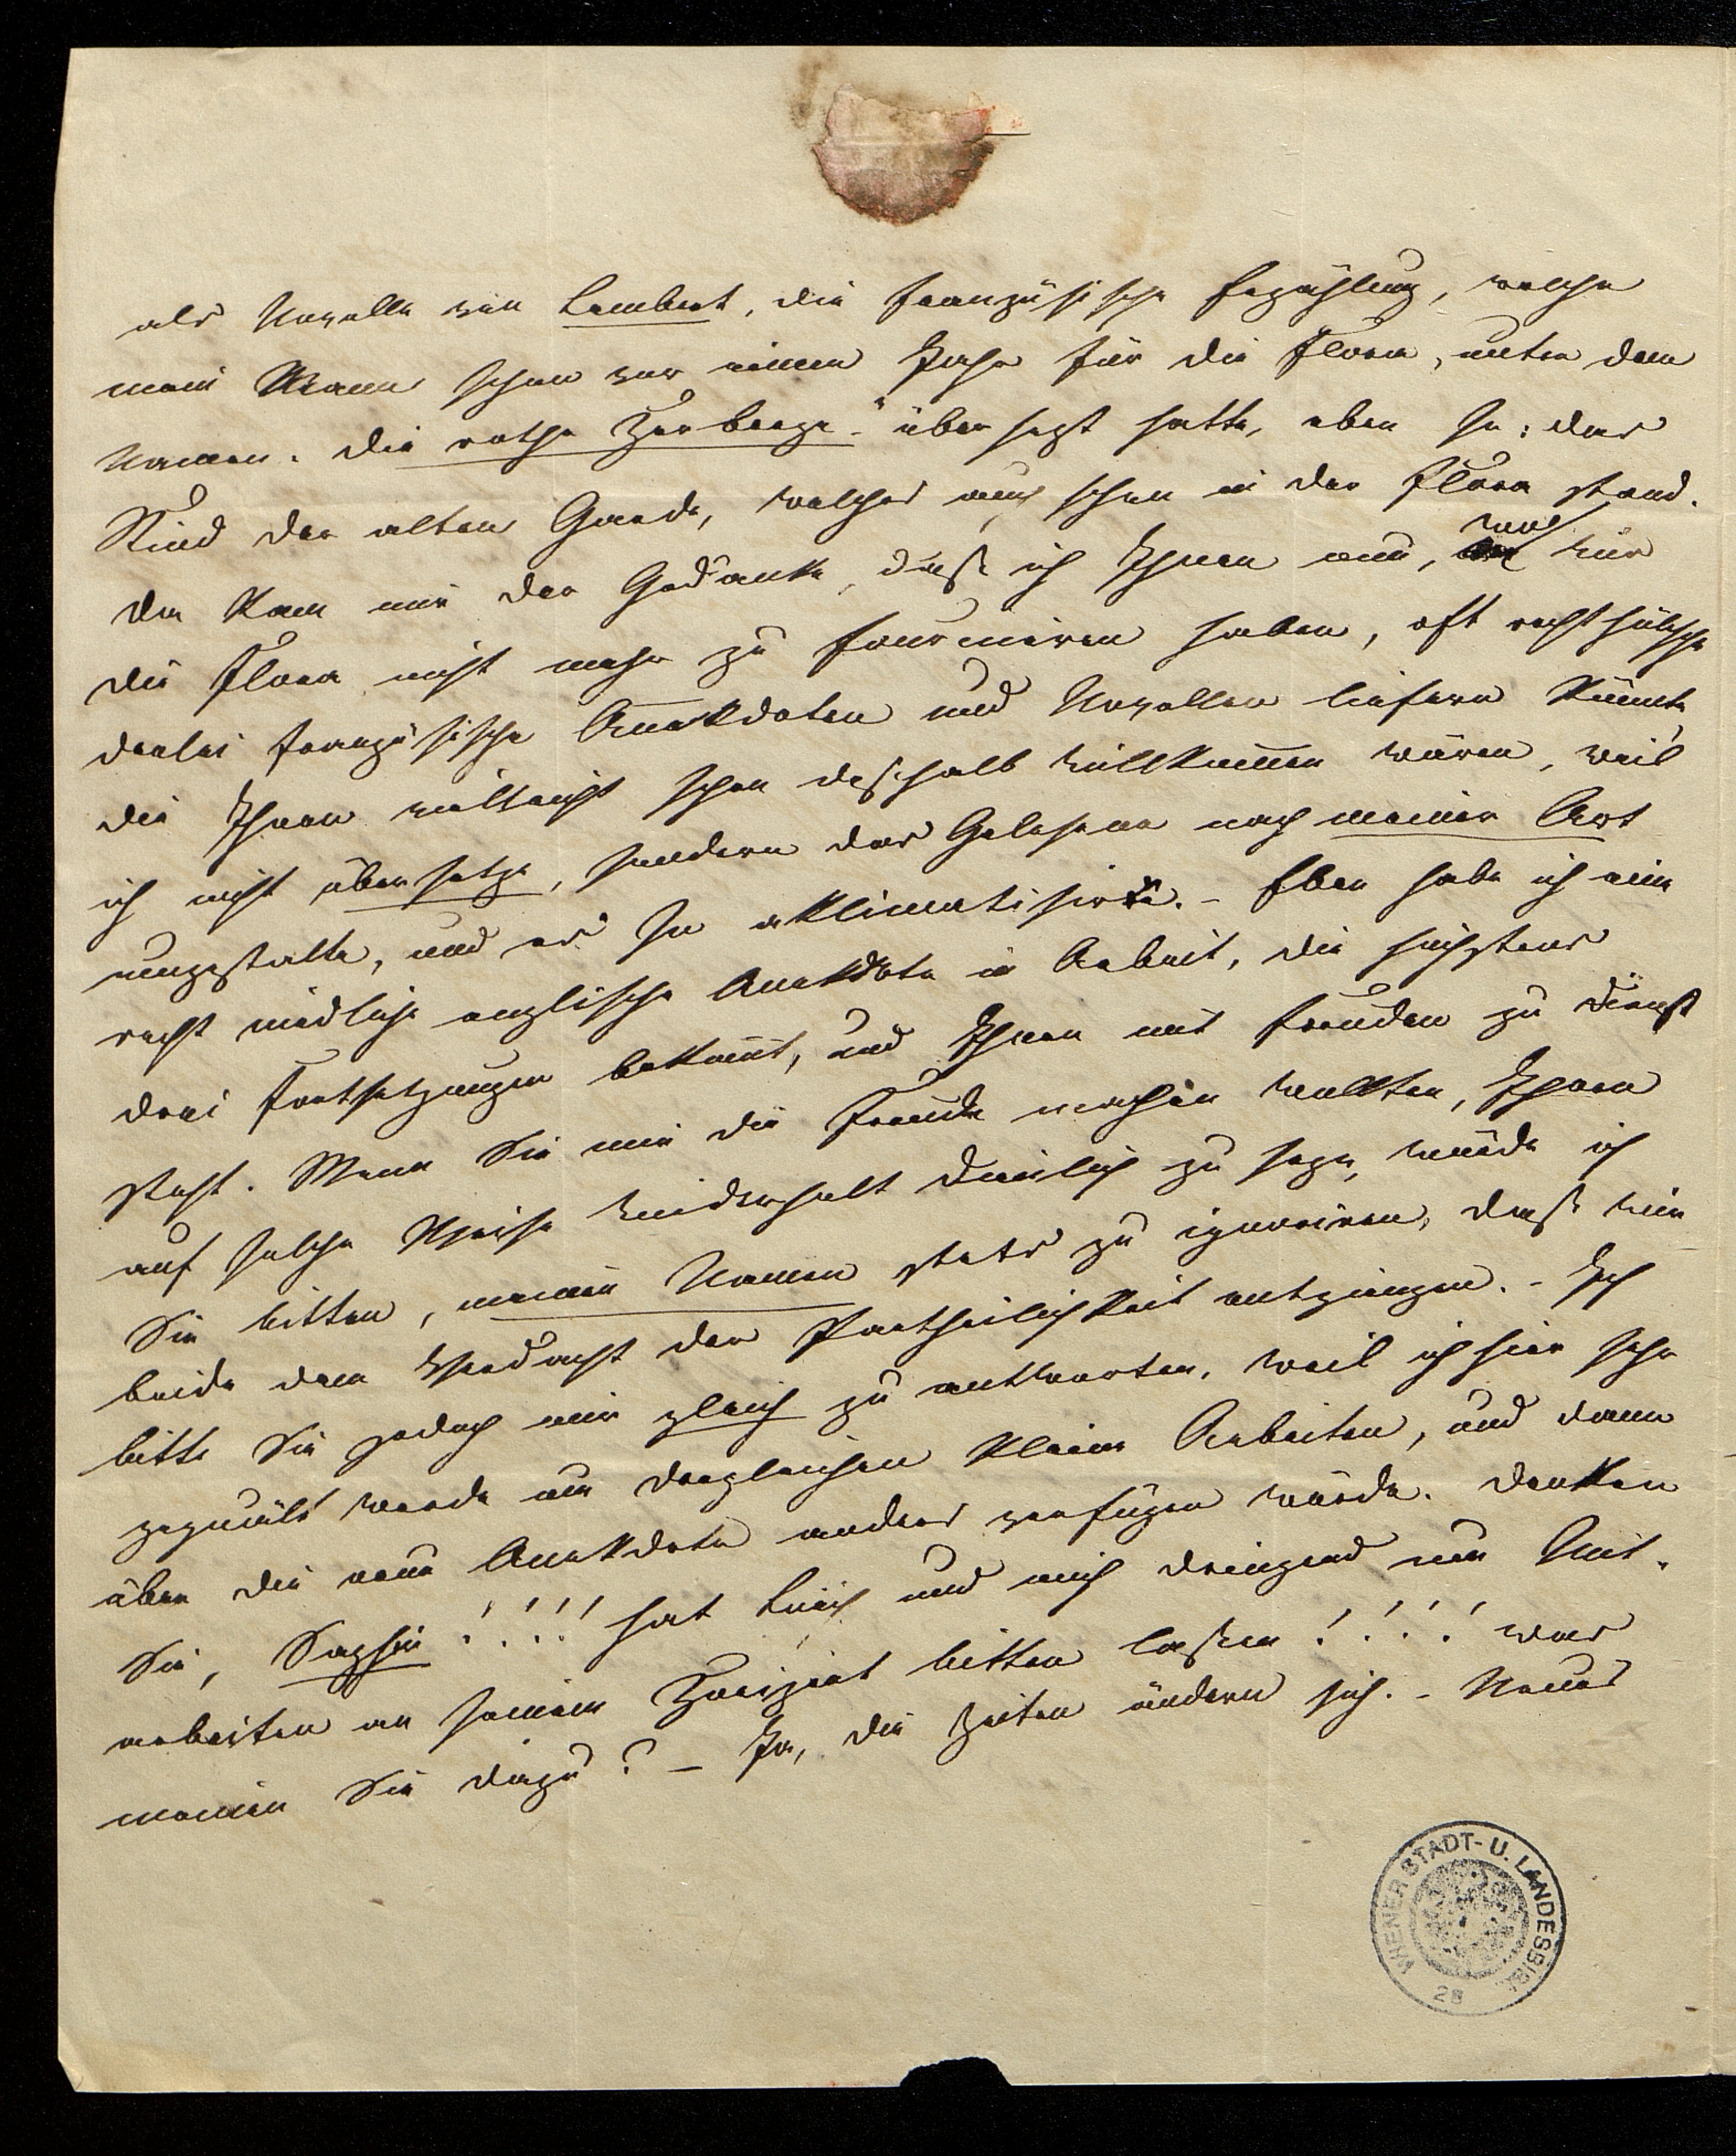 als Novelle von Lembert, die französische Erzählung, welche
mein Mann schon vor einem Jahr für die Flora, unter dem
Namen: die rothe Herberge" übersezt hatte, eben so: das
Kind der alten Garde, welches auch schon in der Flora stand.
Da kam mir der Gedanke, daß ich Ihnen nun, wir
die Flora nicht mehr zu fourniren haben, oft recht hübsche
derlei französische Anekdoten und Novellen liefern könnte,
die Ihnen vielleicht schon deshalb willkommen wären, weil
ich nicht übersetze, sondern das Gelesene nach meiner Art
umgestalte, und es so aklimatisire. - Eben habe ich eine
recht niedliche englische Anekdote in Arbeit, die höchstens
drei Fortsetzungen bekömt, und Ihnen mit Freuden zu Dienst
steht. Wenn Sie mir die Freude machen wollten, Ihnen
auf solche Weise wiederholt dienlich zu seyn, würde ich
Sie bitten, meinen Namen stets zu ignoriren, daß wir
beide dem Verdacht der Partheilichkeit entgingen. - Ich
bitte Sie jedoch mir gleich zu antworten, weil ich hier sehr
gequält werde um dergleichen kleine Arbeiten, und dann
über die neue Anekdote anders verfügen würde. Denken
Sie, Saphir!!!! hat und mich dringend um Mit-
arbeiten an seinem bitten laßen!!!! was
meinen Sie dazu? - Ja, die Zeiten ändern sich. - Neues
WIENER STADT- U. LANDESBIBL.
28